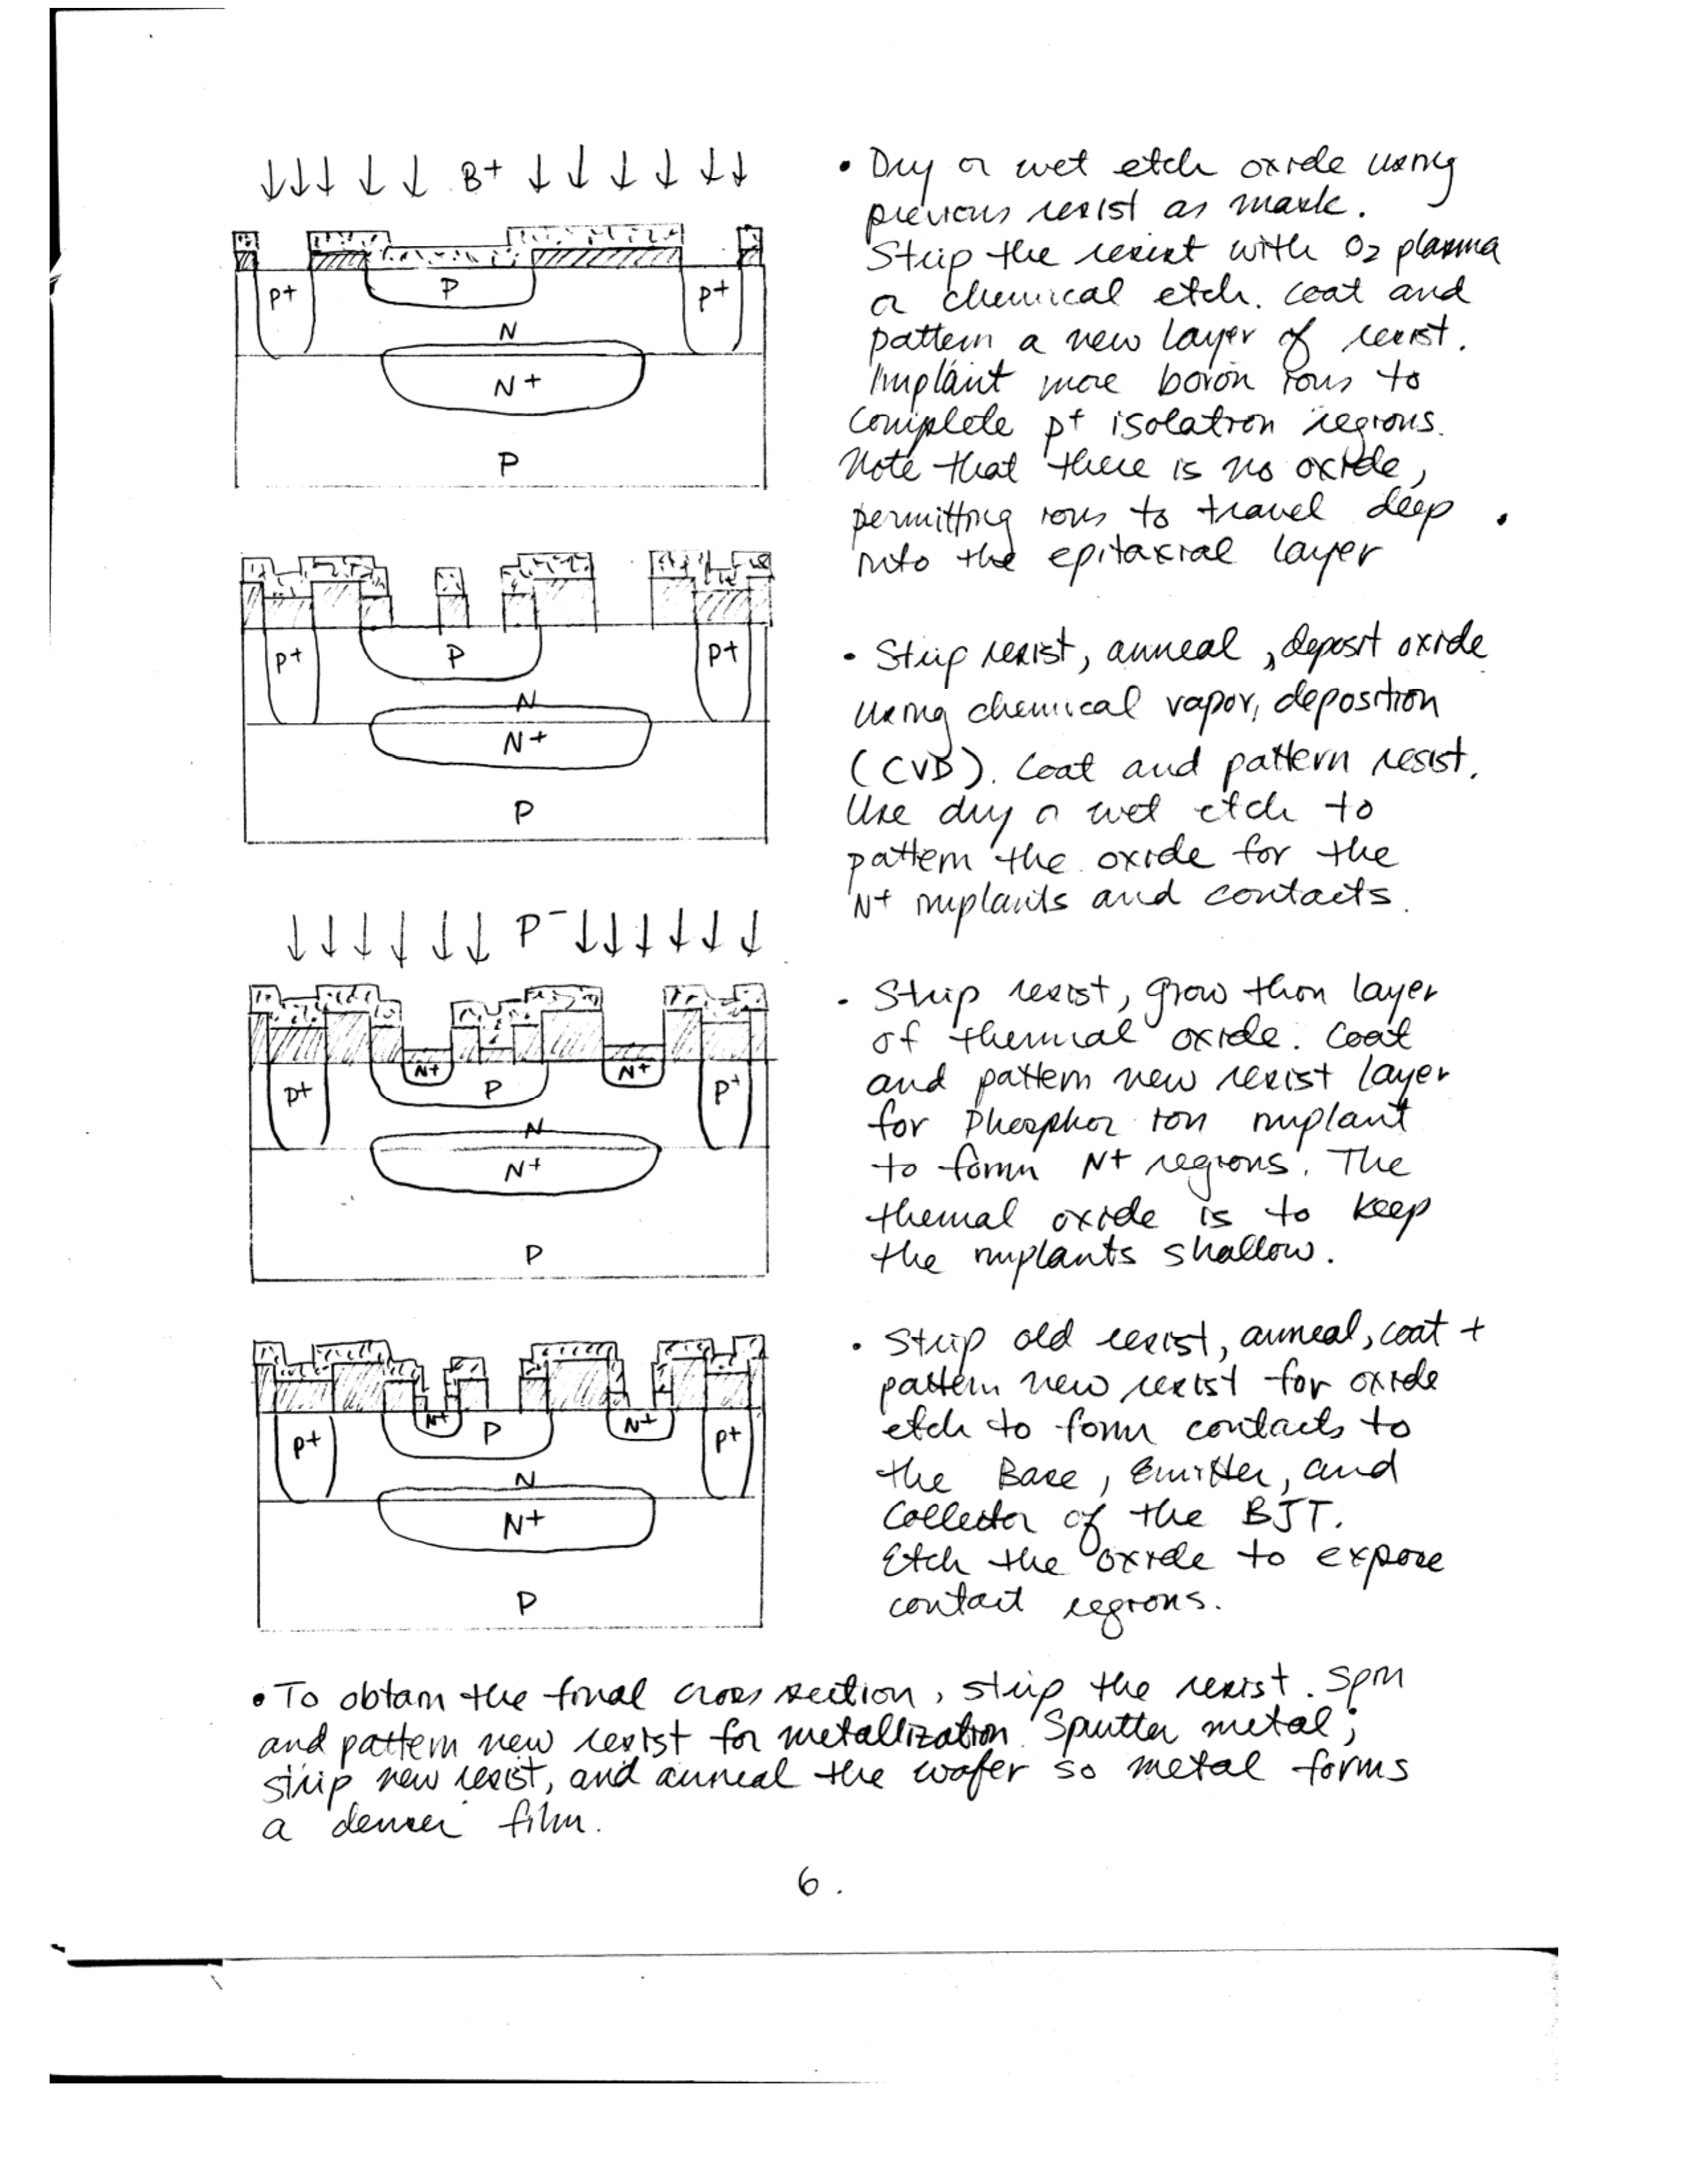 ↓↓↓ ↓ ↓ B+ ↓ ↓ ↓ ↓ ↓ ↓
P+ P P+
N
N+
P
• Dry or wet etch oxide using
previous resist as mask.
Strip the resist with O2 plasma
or chemical etch. Coat and
pattern a new layer of resist.
Implant more boron ions to
complete p+ isolation regions.
Note that there is no oxide,
permitting ions to travel deep
into the epitaxial layer
P+ P P+
N
N+
P
• Strip resist, anneal, deposit oxide
using chemical vapor, deposition
(CVD). Coat and pattern resist.
Use dry or wet etch to
pattern the oxide for the
N+ implants and contacts.
↓ ↓ ↓ ↓ ↓ ↓ P- ↓ ↓ ↓ ↓ ↓ ↓
N+ N+
P+ P P+
N
N+
P
• Strip resist, grow thin layer
of thermal oxide. Coat
and pattern new resist layer
for Phosphor ion implant
to form N+ regions. The
themal oxide is to keep
the implants shallow.
N+ N+
P+ P P+
N
N+
P
• Strip old resist, anneal, coat +
pattern new resist for oxide
etch to form contacts to
the Base, Emitter, and
Collector of the BJT.
Etch the oxide to expose
contact regions.
• To obtain the final cross section, strip the resist. Spin
and pattern new resist for metallization. Sputter metal;
strip new resist, and anneal the wafer so metal forms
a denser film.
6.